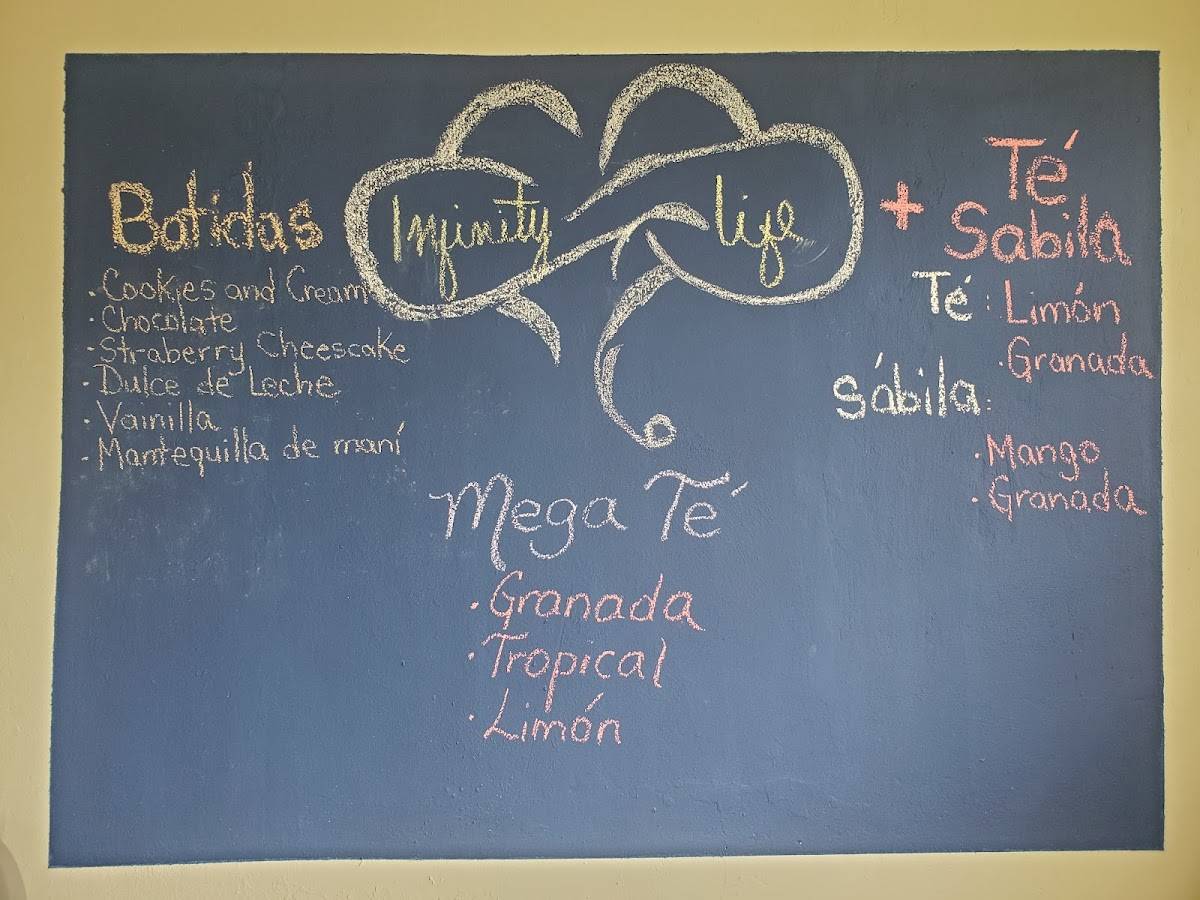 Infinity life
Batidas
· Cookies and Cream
· Chocolate
· Straberry Cheescake
· Dulce de Leche
· Vainilla
· Mantequilla de maní
+ Té
Sabila
Té : Limón
· Granada
Sábila :
· Mango
· Granada
Mega Té
· Granada
· Tropical
· Limón